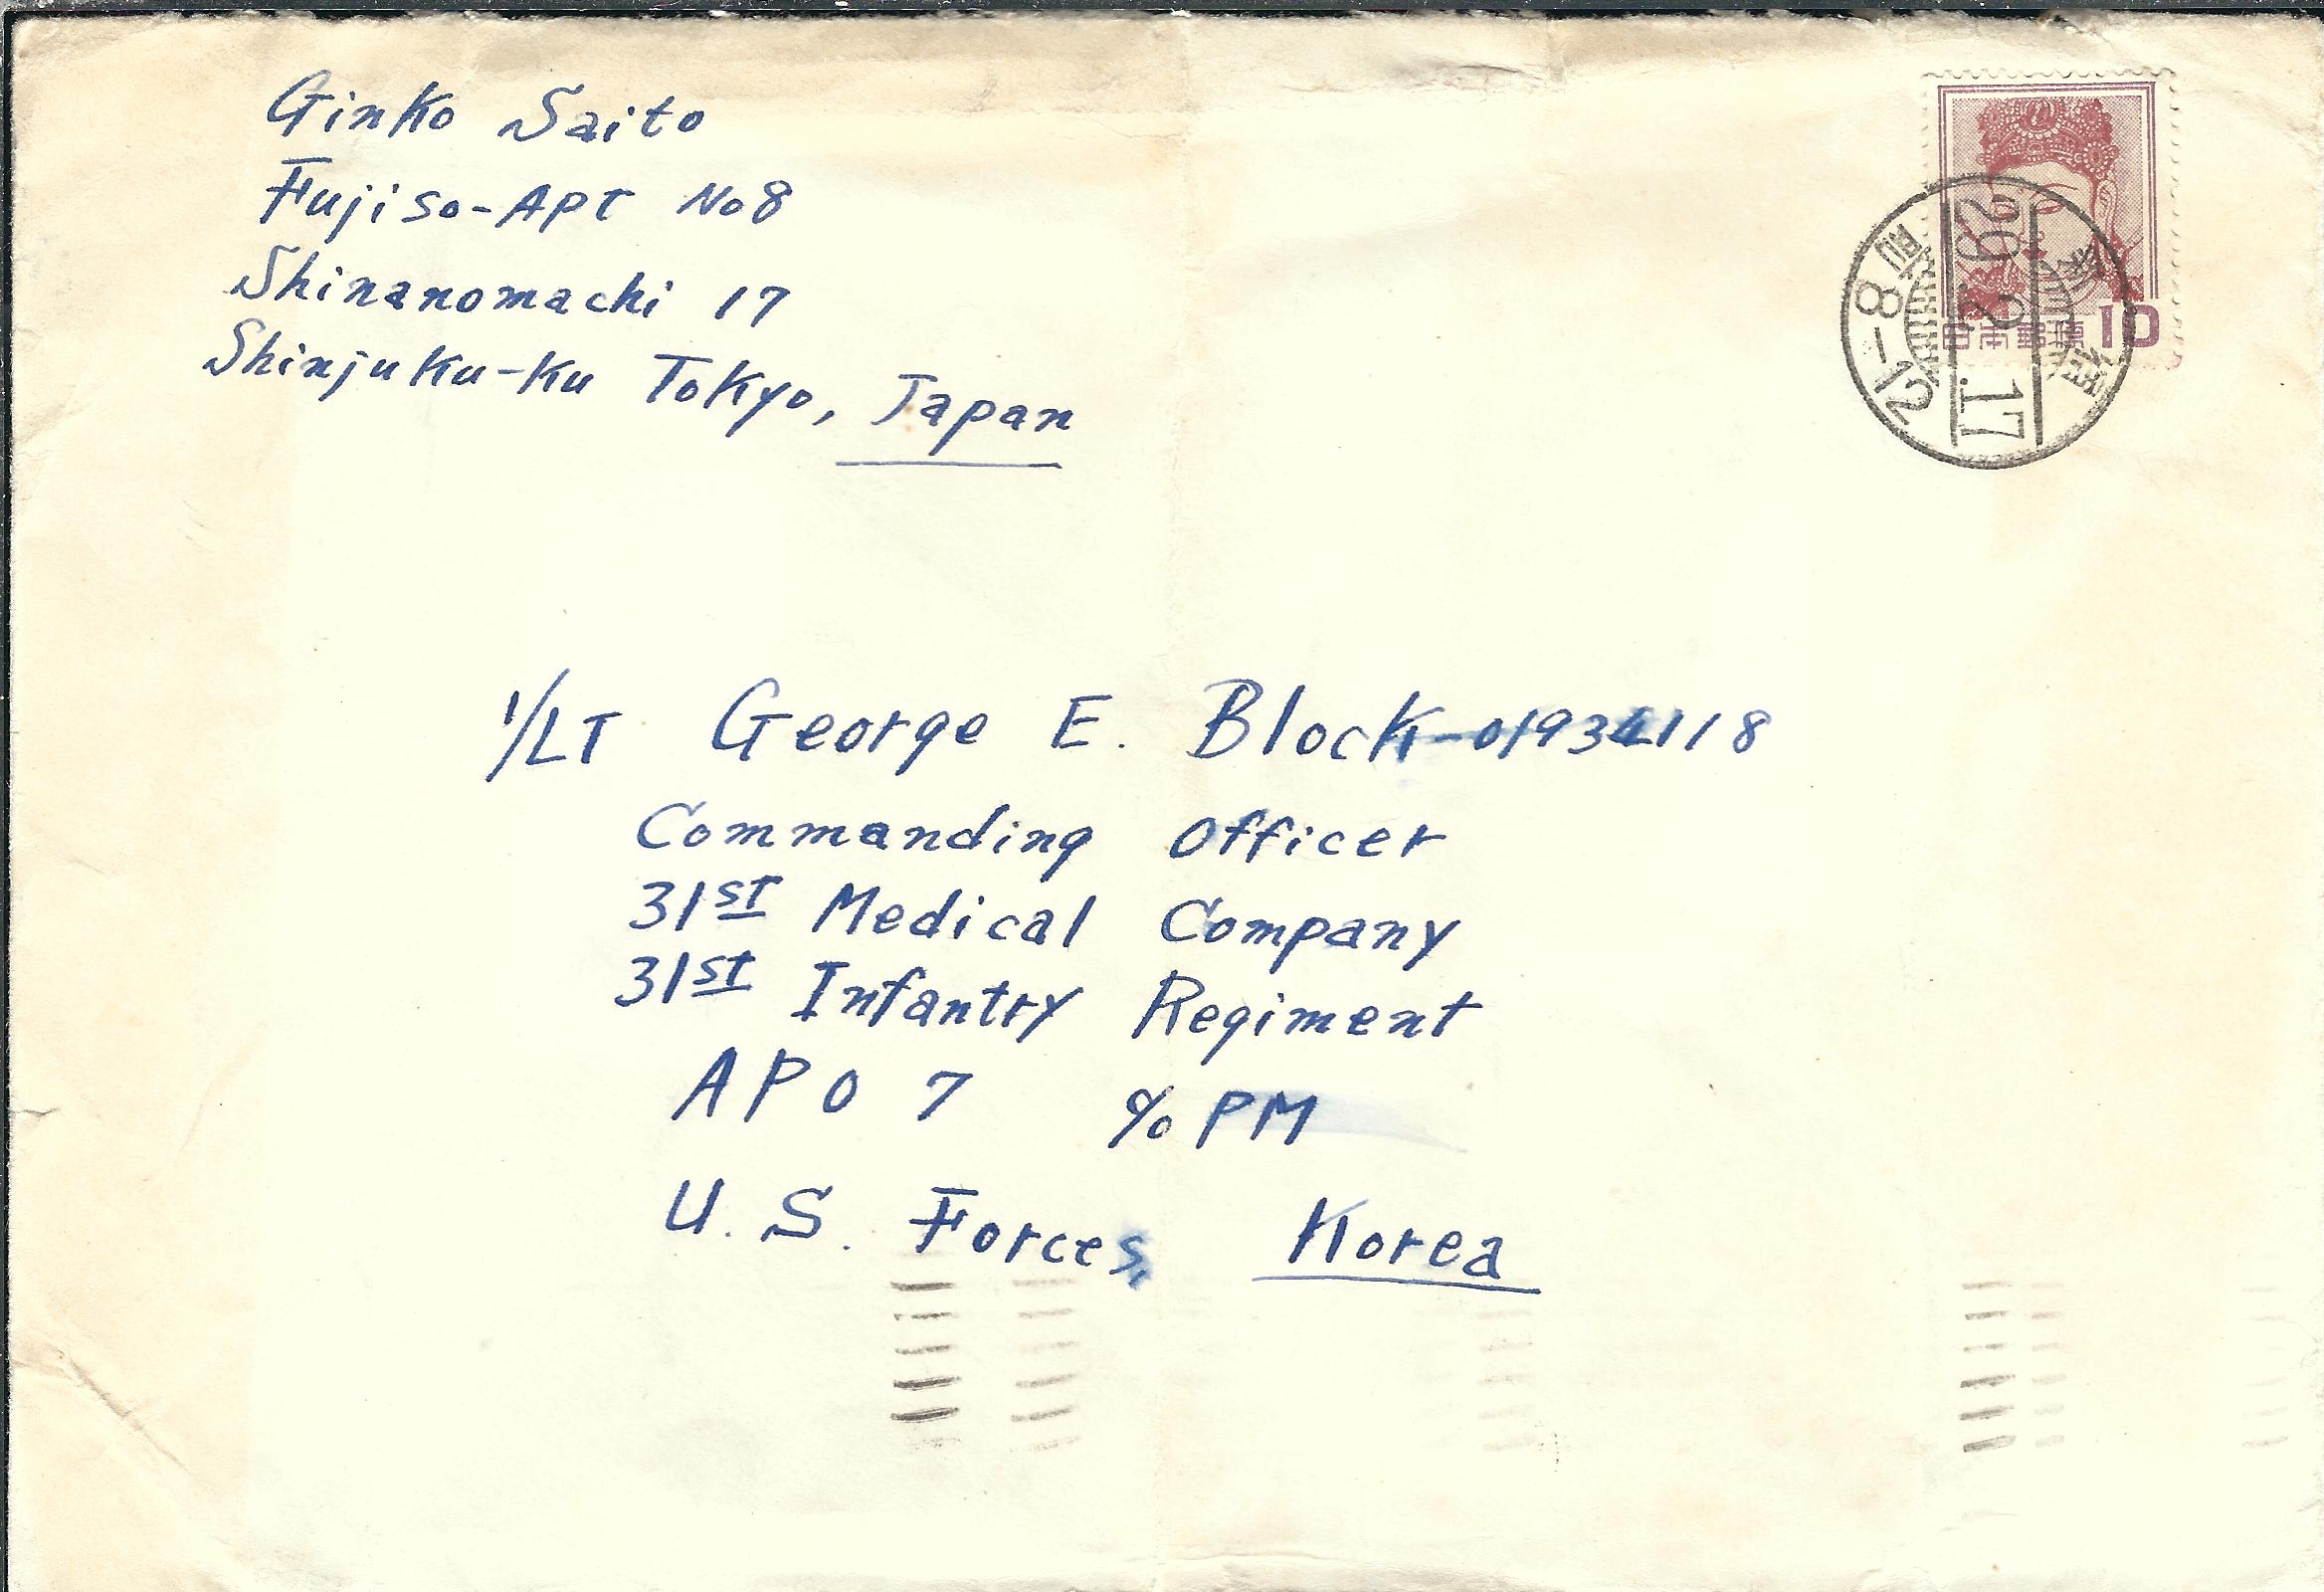 Ginko Saito
Fujiso-Apt No8
Shinanomachi 17
Shinjuku-Ku Tokyo, Japan
日本郵便 10
29.2.17
前8-12
1/LT George E. Block-01934118
Commanding Officer
31st Medical Company
31st Infantry Regiment
APO 7 c/o PM
U.S. Forces, Korea